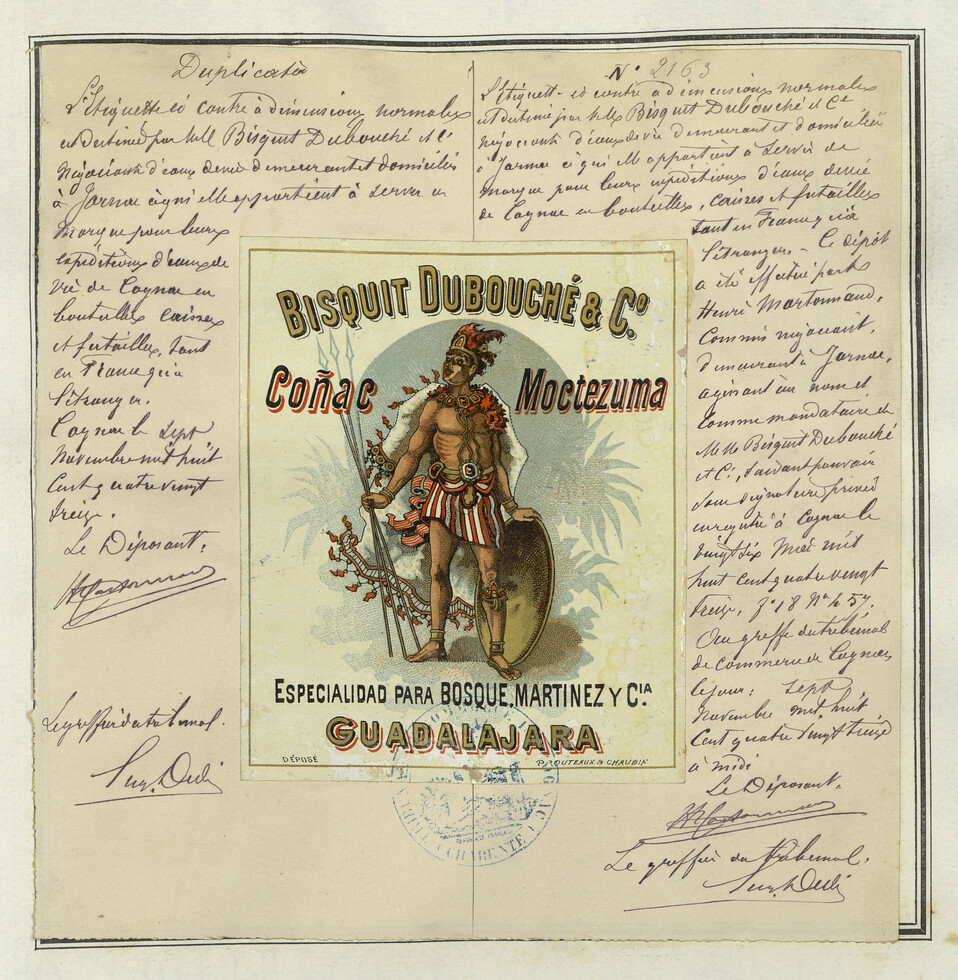 Duplicata
L'Etiquette ci contre à dimensions normales
est destinée par MM Bisquit Dubouché et Cie
négociants d'eaux de vie demeurant et domiciliés
à Jarnac à qui elle appartient à servir de
marque pour leurs
expéditions d'eaux de
vie de Cognac en
bouteilles caisses
et futailles, tant
en France qu'à
l'étranger.
Cognac le sept
Novembre mil huit
cent quatre vingt
treize.
Le Déposant.
Le greffier du tribunal.
N° 2163
L'Etiquette ci contre à dimensions normales
est destinée par MM Bisquit Dubouché et Cie
négociants d'eaux de vie demeurant et domiciliés
à Jarnac à qui elle appartient à servir de
marque pour leurs expéditions d'eaux de vie
de Cognac en bouteilles, caisses et futailles
tant en France qu'à
l'étranger. Ce dépôt
a été effectué par M
Henri Martonnaud,
Commis négociant,
demeurant à Jarnac,
agissant au nom et
comme mandataire de
MM Bisquit Dubouché
et Cie, suivant pouvoir
sous signatures privées
enregistré à Cognac le
vingt six Mai mil
huit cent quatre vingt
treize, fo 18 No 457.
Au greffe du tribunal
de commerce de Cognac
le jour: sept
Novembre mil huit
cent quatre vingt treize
à midi
Le Déposant.
Le greffier du tribunal.
BISQUIT DUBOUCHÉ & Co.
COÑAC MOCTEZUMA
ESPECIALIDAD PARA BOSQUE, MARTINEZ Y CIA.
GUADALAJARA
DÉPOSÉ
PROUTEAUX & CHAUBIF
CHARENTE